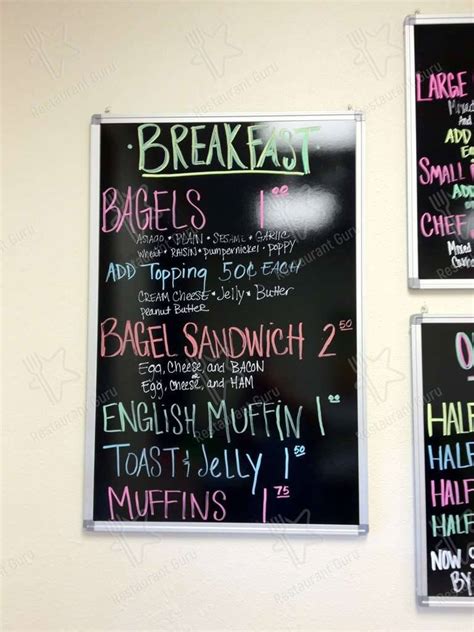 · BREAKFAST ·
BAGELS 1.00
ASIAGO • PLAIN • SESAME • GARLIC
wheat • RAISIN • pumpernickel • poppy
ADD Topping 50¢ EACH
CREAM CHEESE • Jelly • Butter
peanut Butter
BAGEL SANDWICH 2.50
Egg, Cheese, and BACON
or
Egg, Cheese, and HAM
ENGLISH MUFFIN 1.00
TOAST & Jelly 1.50
MUFFINS 1.75
LARGE
Mixed
And
ADD
SMALL
CHEF
Mixed
HALF
HALF
HALF
HALF
NOW
BY
Restaurant Guru